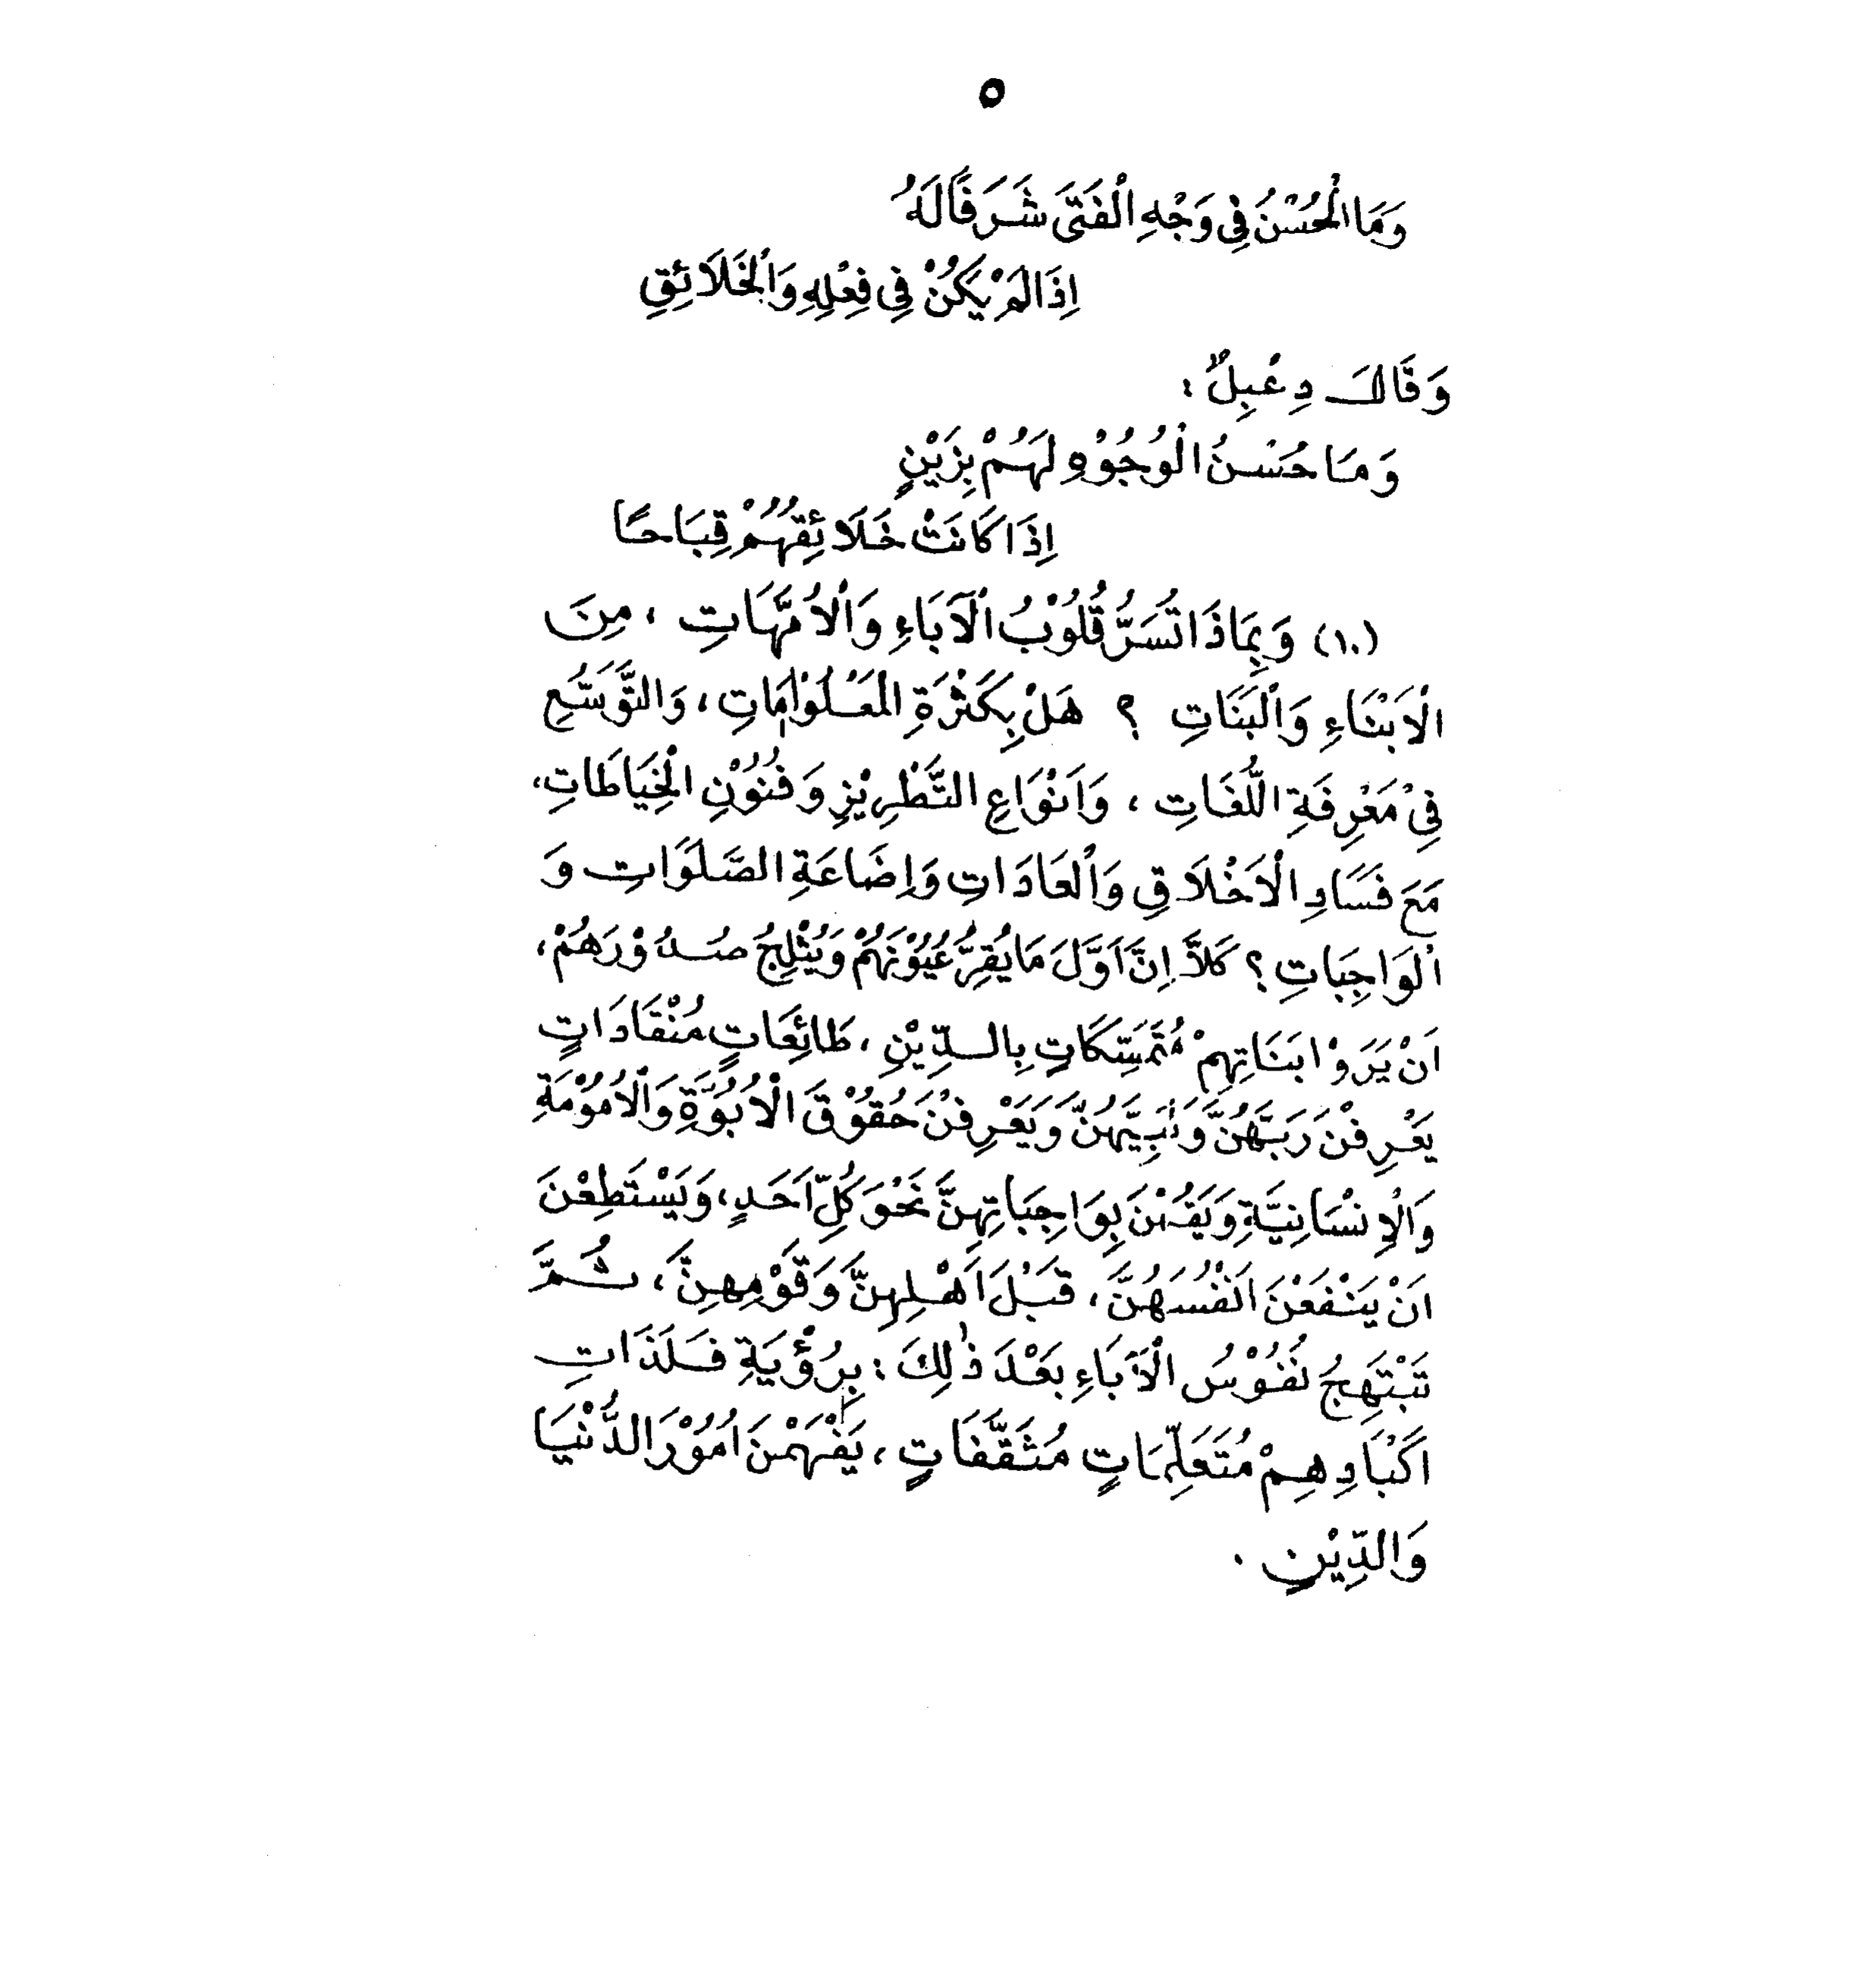 ٥
وَمَا الْحُسْنُ فِي وَجْهِ الْفَتَى شَرَفًا لَهُ
اِذَا لَمْ يَكُنْ فِي فِعْلِهِ وَالْخَلَائِقِ
وَقَالَ دِعْبِلٌ :
وَمَا حُسْنُ الْوُجُوْهِ لَهُمْ بِزَيْنٍ
اِذَا كَانَتْ خَلَائِقُهُمْ قِبَاحًا
(١٠) وَبِمَاذَا تُسَرُّ قُلُوْبُ الْآبَاءِ وَالْاُمَّهَاتِ ، مِنَ
الْاَبْنَاءِ وَالْبَنَاتِ ؟ هَلْ بِكَثْرَةِ الْمَعْلُوْامَاتِ ، وَالتَّوَسُّعِ
فِيْ مَعْرِفَةِ اللُّغَاتِ ، وَاَنْوَاعِ التَّطْرِيْزِ وَفُنُوْنِ الْخِيَاطَاتِ ،
مَعَ فَسَادِ الْاَخْلَاقِ وَالْعَادَاتِ وَاِضَاعَةِ الصَّلَوَاتِ وَ
الْوَاجِبَاتِ ؟ كَلاَّ اِنَّ اَوَّلَ مَا يُقِرُّ عُيُوْنَهُمْ وَيُثْلِجُ صُدُوْرَهُمْ ،
اَنْ يَرَوْا بَنَاتِهِمْ مُتَمَسِّكَاتٍ بِالدِّيْنِ ، طَائِعَاتٍ مُنْقَادَاتٍ
يَعْرِفْنَ رَبَّهُنَّ وَنَبِيَّهُنَّ وَيَعْرِفْنَ حُقُوْقَ الْاُبُوَّةِ وَالْاُمُوْمَةِ
وَالْاِنْسَانِيَّةِ وَيَقُمْنَ بِوَاجِبَاتِهِنَّ نَحْوَ كُلِّ اَحَدٍ ، وَيَسْتَطِعْنَ
اَنْ يَنْفَعْنَ اَنْفُسَهُنَّ ، قَبْلَ اَهْلِهِنَّ وَقَوْمِهِنَّ ، ثُمَّ
تَبْتَهِجُ نُفُوْسُ الْآبَاءِ بَعْدَ ذٰلِكَ : بِرُؤْيَةِ فَلَذَاتِ
اَكْبَادِهِمْ مُتَعَلِّمَاتٍ مُثَقَّفَاتٍ ، يَفْهَمْنَ اُمُوْرَ الدُّنْيَا
وَالدِّيْنِ .